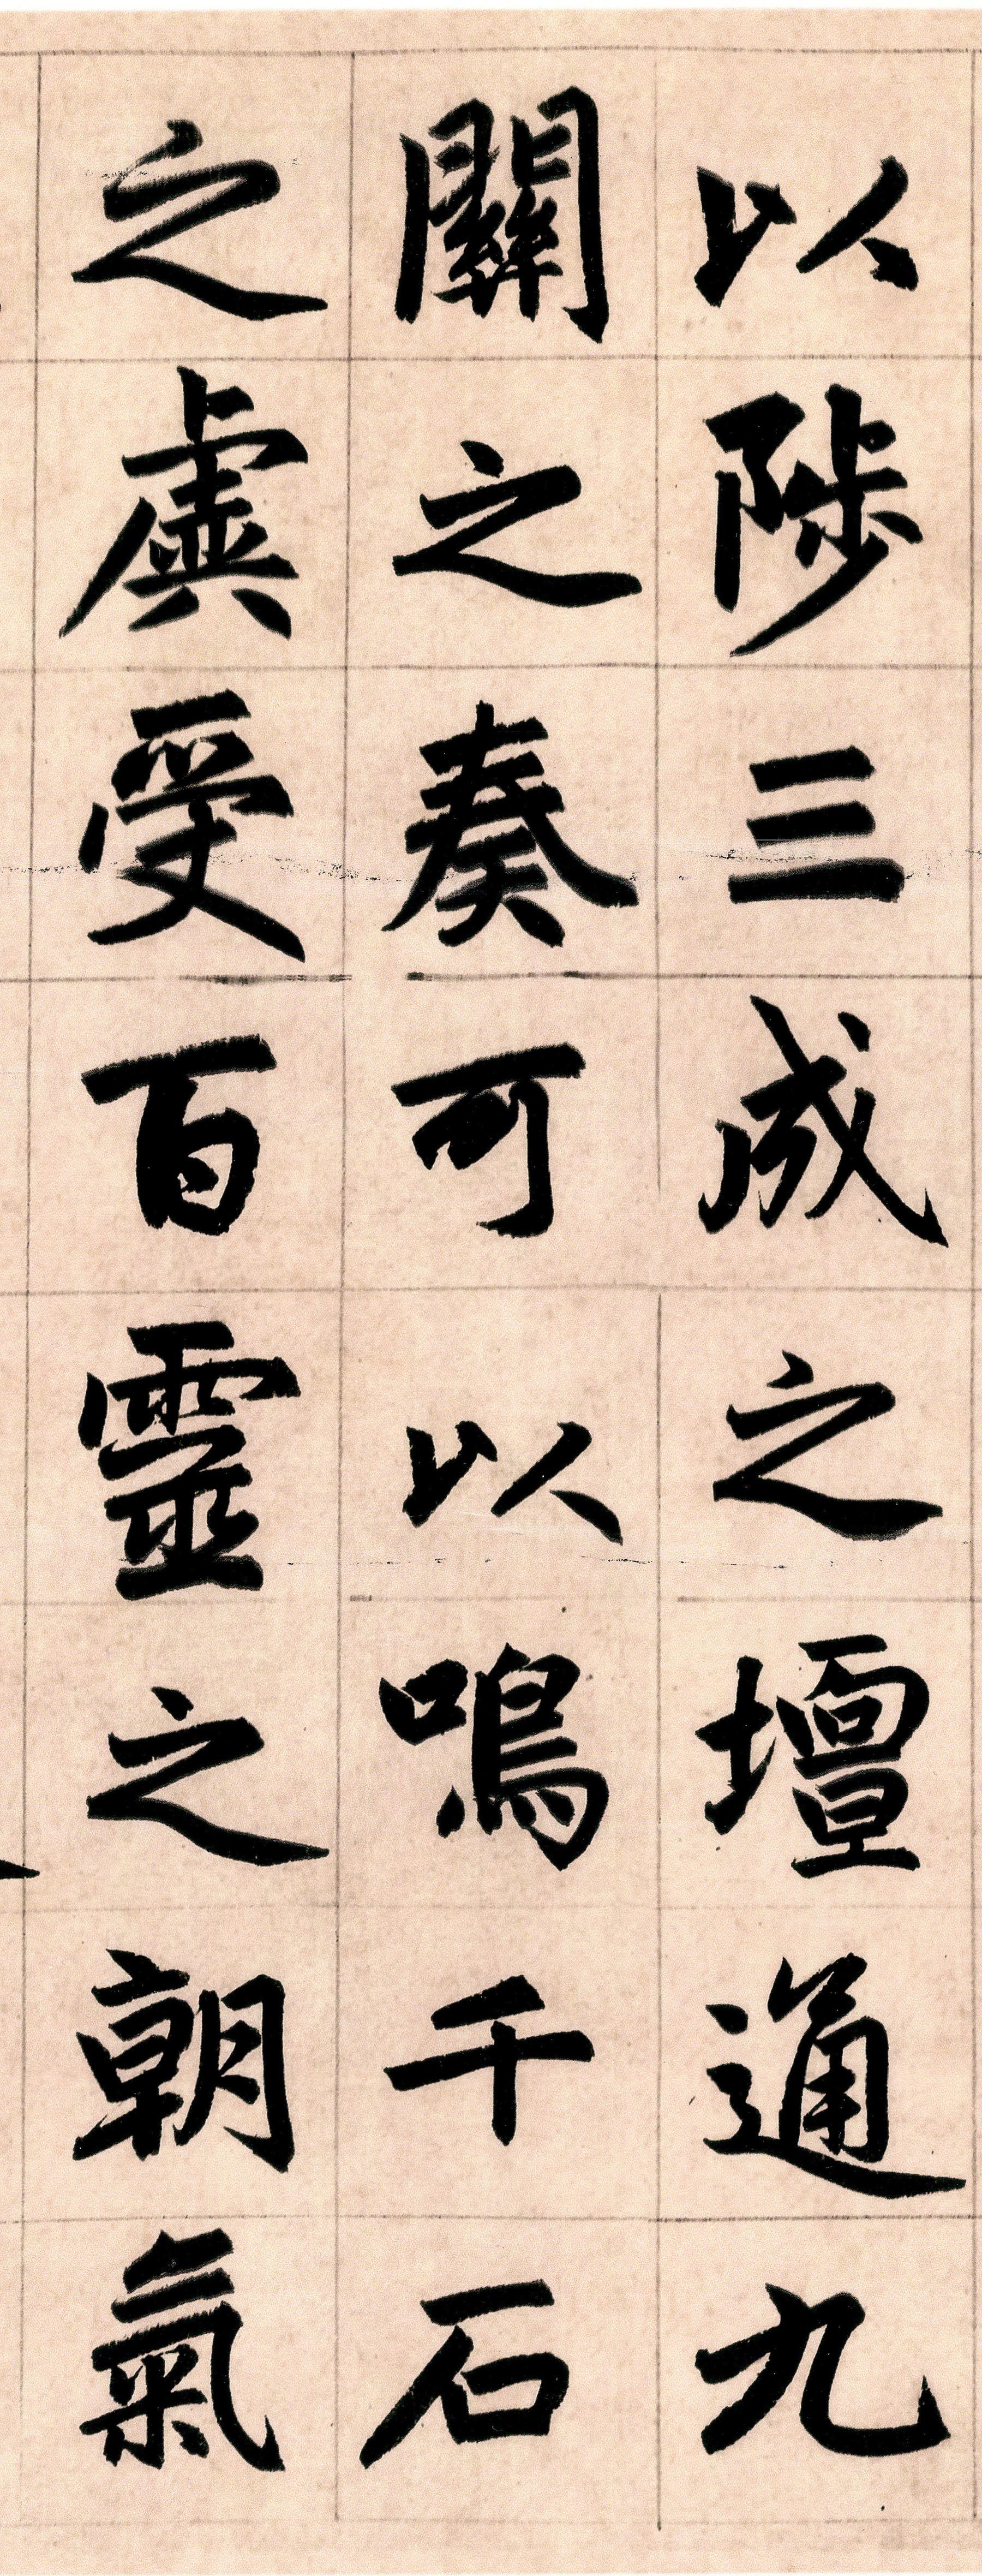 以陟三成之壇通九
關之奏可以鳴千石
之虡受百靈之朝氣